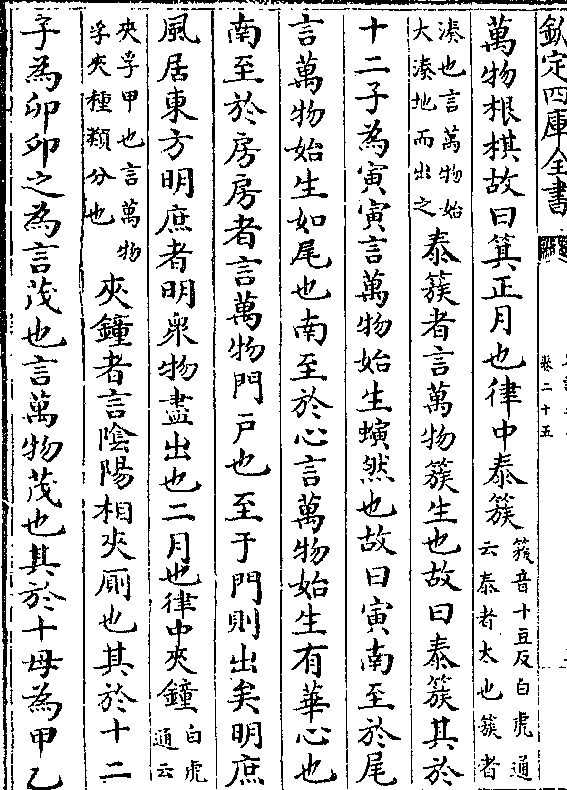 欽定四庫全書
卷二十五
萬物根棋故曰箕正月也律中泰簇簇音千豆反白虎通云泰者太也簇者
湊也言萬物始大湊地而出之泰簇者言萬物簇生也故曰泰簇其於
十二子為寅寅言萬物始生螾然也故曰寅南至於尾
言萬物始生如尾也南至於心言萬物始生有華心也
南至於房房者言萬物門戸也至于門則出矣明庶
風居東方明庶者明衆物盡出也二月也律中夾鐘白虎通云
夾孚甲也言萬物孚夾種類分也夾鐘者言陰陽相夾厠也其於十二
子為卯卯之為言茂也言萬物茂也其於十母為甲乙